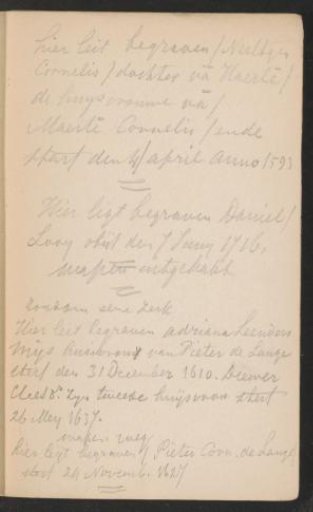 hier leit begraven / Neeltgen
Cornelis / dochter vā Maertē /
de huysvrouwe vā /
Maertē Cornelis / ende
sterf den 4 / april anno 159
Hier ligt begraven Daniel /
Looy obiit den 7 Juny 1716,
wapen uitgekakt
rondom een zerk
Hier leit begraven adriana Leenders
Wijf huisvrouw van Pieter de Lange
sterf den 31 December 1610.
Claes dr. Zyn tweede huysvrou sterf
26 Mey 1637.
wapen weg
Hier legt begraven Pieter Corn. de Lange
sterf 24 Novemb. 1627